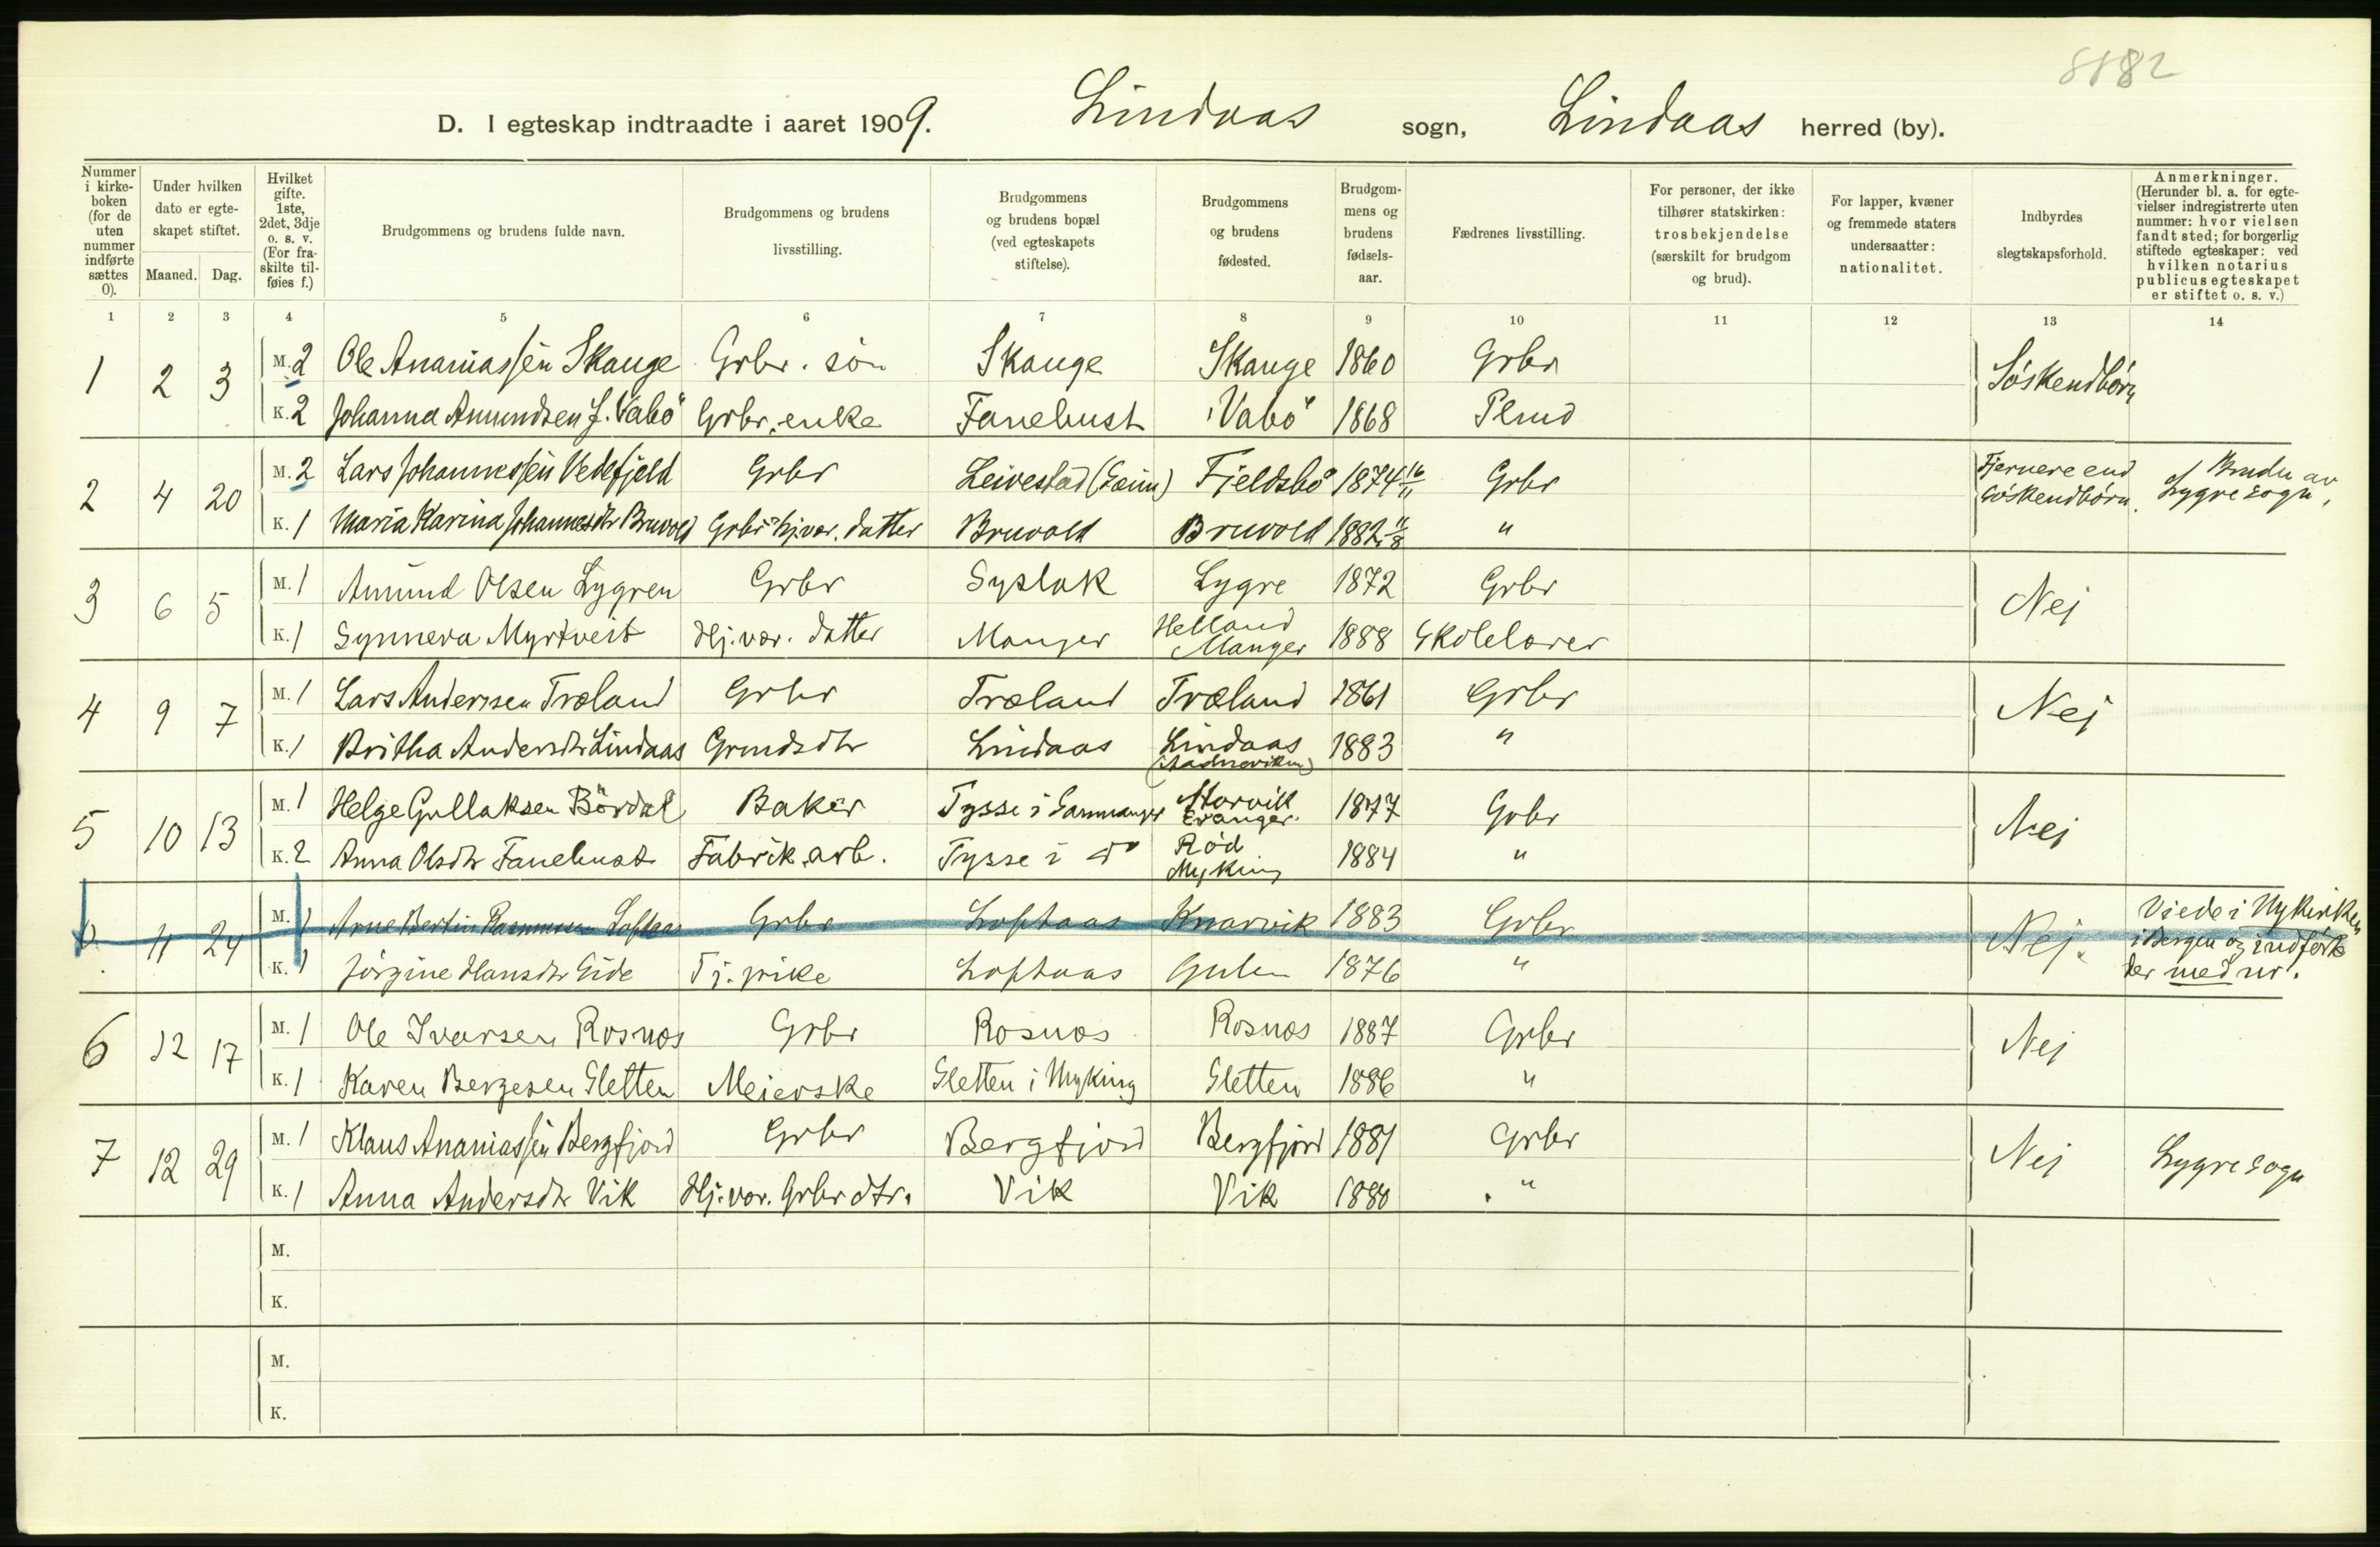 8882
D. I egteskap indtraadte i aaret 1909. Lindaas sogn, Lindaas herred (by).
Nummer i kirke-boken (for de uten nummer indførte sættes 0).
Under hvilken dato er egte-skapet stiftet.
Maaned. Dag.
Hvilket gifte. 1ste, 2det, 3dje o. s. v. (For fra-skilte til-føies f.)
Brudgommens og brudens fulde navn.
Brudgommens og brudens livsstilling.
Brudgommens og brudens bopæl (ved egteskapets stiftelse).
Brudgommens og brudens fødested.
Brudgom-mens og brudens fødsels-aar.
Fædrenes livsstilling.
For personer, der ikke tilhører statskirken: trosbekjendelse (særskilt for brudgom og brud).
For lapper, kvæner og fremmede staters undersaatter: nationalitet.
Indbyrdes slegtskapsforhold.
Anmerkninger. (Herunder bl. a. for egte-vielser indregistrerte uten nummer: hvor vielsen fandt sted; for borgerlig stiftede egteskaper: ved hvilken notarius publicus egteskapet er stiftet o. s. v.)
1 2 3 4 5 6 7 8 9 10 11 12 13 14
1 2 3 M. 2 Ole Ananiassen Skauge Grbr. søn Skauge Skauge 1860 Grbr Søskendbørn
K. 2 Johanna Amundsen f. Vabø Grbr. enke Fanebust Vabø 1868
2 4 20 M. 2 Lars Johannessen Vedefjeld Grbr Leivestad Fjeldsbø 1874 16/11 Grbr Fjernere end søskendbørn. Bruden av Lygre sogn.
K. 1 Maria Karina Johannesdtr Bruvold Grbr hj.vær. datter Bruvold Bruvold 1882 11/8 "
3 6 5 M. 1 Amund Olsen Lygren Grbr Syslak Lygre 1872 Grbr Nej
K. 1 Synneva Myrtveit Hj.vær. datter Manger Helland Manger 1888 Skolelærer
4 9 7 M. 1 Lars Andersen Træland Grbr Træland Træland 1861 Grbr Nej
K. 1 Britha Andersdtr Lindaas Grmdsdtr Lindaas Lindaas 1883 "
5 10 13 M. 1 Helge Gullaksen Børdal Baker Tysse i Samnanger Storvik Evanger 1877 Grbr Nej
K. 2 Anna Olsdtr Fanebust Fabrik.arb. Tysse i do Rød Myking 1884 "
0. 11 24 M. 1 Arne Bertin Rasmussen Loftaas Grbr Loftaas Knarvik 1883 Grbr Nej. Viede i Nykirken i Bergen og indført der med nr.
K. 1 Jørgine Hansdtr Eide Tj. pike Loftaas Gulen 1876 "
6 12 17 M. 1 Ole Ivarsen Rosnæs Grbr Rosnæs Rosnæs 1887 Grbr Nej
K. 1 Karen Bergesen Sletten Meierske Sletten i Myking Sletten 1886 "
7 12 29 M. 1 Klaus Ananiassen Bergfjord Grbr Bergfjord Bergfjord 1881 Grbr Nej Lygre sogn
K. 1 Anna Andersdtr Vik Hj.vær. Grbr dtr. Vik Vik 1880 "
M.
K.
M.
K.